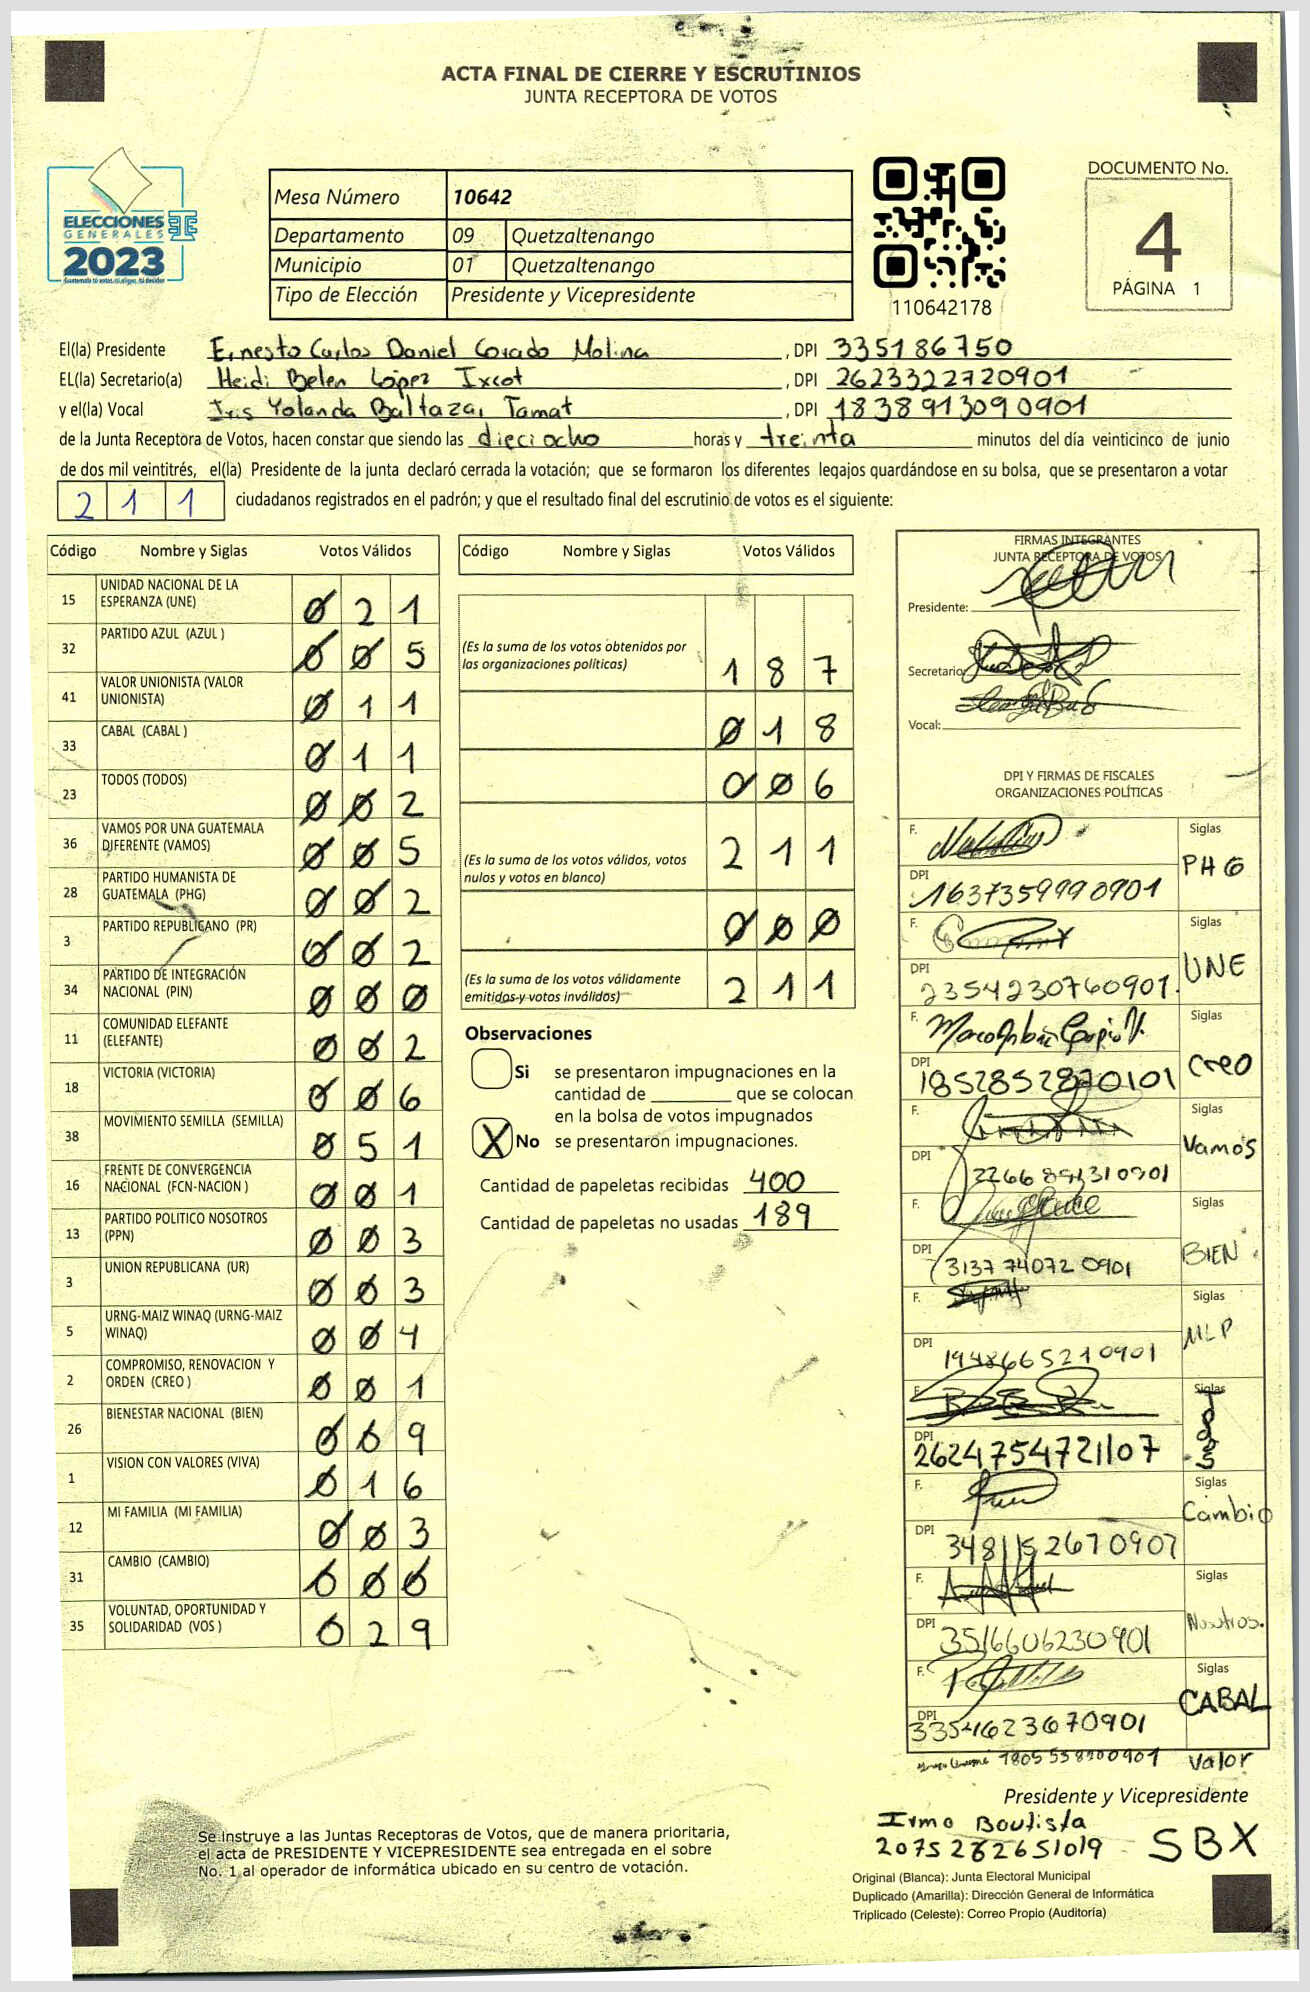 ACTA FINAL DE CIERRE Y ESCRUTINIOS
JUNTA RECEPTORA DE VOTOS
ELECCIONES
GENERALES
2023
Mesa Número 10642
Departamento 09 Quetzaltenango
Municipio 01 Quetzaltenango
Tipo de Elección Presidente y Vicepresidente
110642178
DOCUMENTO No.
4
PÁGINA 1
El(la) Presidente Ernesto Carlos Daniel Corado Molina, DPI 335186750
EL(la) Secretario(a) Heidi Belen López Ixcot, DPI 2623322720901
y el(la) Vocal Iris Yolanda Baltazar Tamat, DPI 1838913090901
de la Junta Receptora de Votos, hacen constar que siendo las dieciocho horas y treinta minutos del día veinticinco de junio
de dos mil veintitrés, el(la) Presidente de la junta declaró cerrada la votación; que se formaron los diferentes legajos quardándose en su bolsa, que se presentaron a votar
211 ciudadanos registrados en el padrón; y que el resultado final del escrutinio de votos es el siguiente:
Código Nombre y Siglas Votos Válidos
15 UNIDAD NACIONAL DE LA ESPERANZA (UNE) 021
32 PARTIDO AZUL (AZUL ) 005
41 VALOR UNIONISTA (VALOR UNIONISTA) 011
33 CABAL (CABAL ) 011
23 TODOS (TODOS) 002
36 VAMOS POR UNA GUATEMALA DIFERENTE (VAMOS) 005
28 PARTIDO HUMANISTA DE GUATEMALA (PHG) 002
3 PARTIDO REPUBLICANO (PR) 002
34 PARTIDO DE INTEGRACIÓN NACIONAL (PIN) 000
11 COMUNIDAD ELEFANTE (ELEFANTE) 002
18 VICTORIA (VICTORIA) 006
38 MOVIMIENTO SEMILLA (SEMILLA) 051
16 FRENTE DE CONVERGENCIA NACIONAL (FCN-NACION ) 001
13 PARTIDO POLITICO NOSOTROS (PPN) 003
3 UNION REPUBLICANA (UR) 003
5 URNG-MAIZ WINAQ (URNG-MAIZ WINAQ) 004
2 COMPROMISO, RENOVACION Y ORDEN (CREO ) 001
26 BIENESTAR NACIONAL (BIEN) 009
1 VISION CON VALORES (VIVA) 016
12 MI FAMILIA (MI FAMILIA) 003
31 CAMBIO (CAMBIO) 000
35 VOLUNTAD, OPORTUNIDAD Y SOLIDARIDAD (VOS ) 029
Código Nombre y Siglas Votos Válidos
(Es la suma de los votos obtenidos por las organizaciones políticas) 187
018
006
(Es la suma de los votos válidos, votos nulos y votos en blanco) 211
000
(Es la suma de los votos válidamente emitidos y votos inválidos) 211
Observaciones
Si se presentaron impugnaciones en la
cantidad de ________ que se colocan
en la bolsa de votos impugnados
X No se presentaron impugnaciones.
Cantidad de papeletas recibidas 400
Cantidad de papeletas no usadas 189
FIRMAS INTEGRANTES
JUNTA RECEPTORA DE VOTOS
Presidente:
Secretario:
Vocal:
DPI Y FIRMAS DE FISCALES
ORGANIZACIONES POLÍTICAS
F. Siglas PHG
DPI 1637359990901
F. Siglas UNE
DPI 2354230760901
F. Siglas Creo
DPI 1852852870101
F. Siglas Vamos
DPI 2266891310901
F. Siglas BIEN
DPI 3137740720901
F. Siglas MLP
DPI 1948665210901
F. Siglas Todos
DPI 2624754721107
F. Siglas Cambio
DPI
F. Siglas Nosotros.
DPI 3516606230901
F. Siglas CABAL
DPI 3354623670901
Valor
Presidente y Vicepresidente
Irma Bautista
2075282651019 SBX
Se instruye a las Juntas Receptoras de Votos, que de manera prioritaria,
el acta de PRESIDENTE Y VICEPRESIDENTE sea entregada en el sobre
No. 1 al operador de informática ubicado en su centro de votación.
Original (Blanca): Junta Electoral Municipal
Duplicado (Amarilla): Dirección General de Informática
Triplicado (Celeste): Correo Propio (Auditoría)